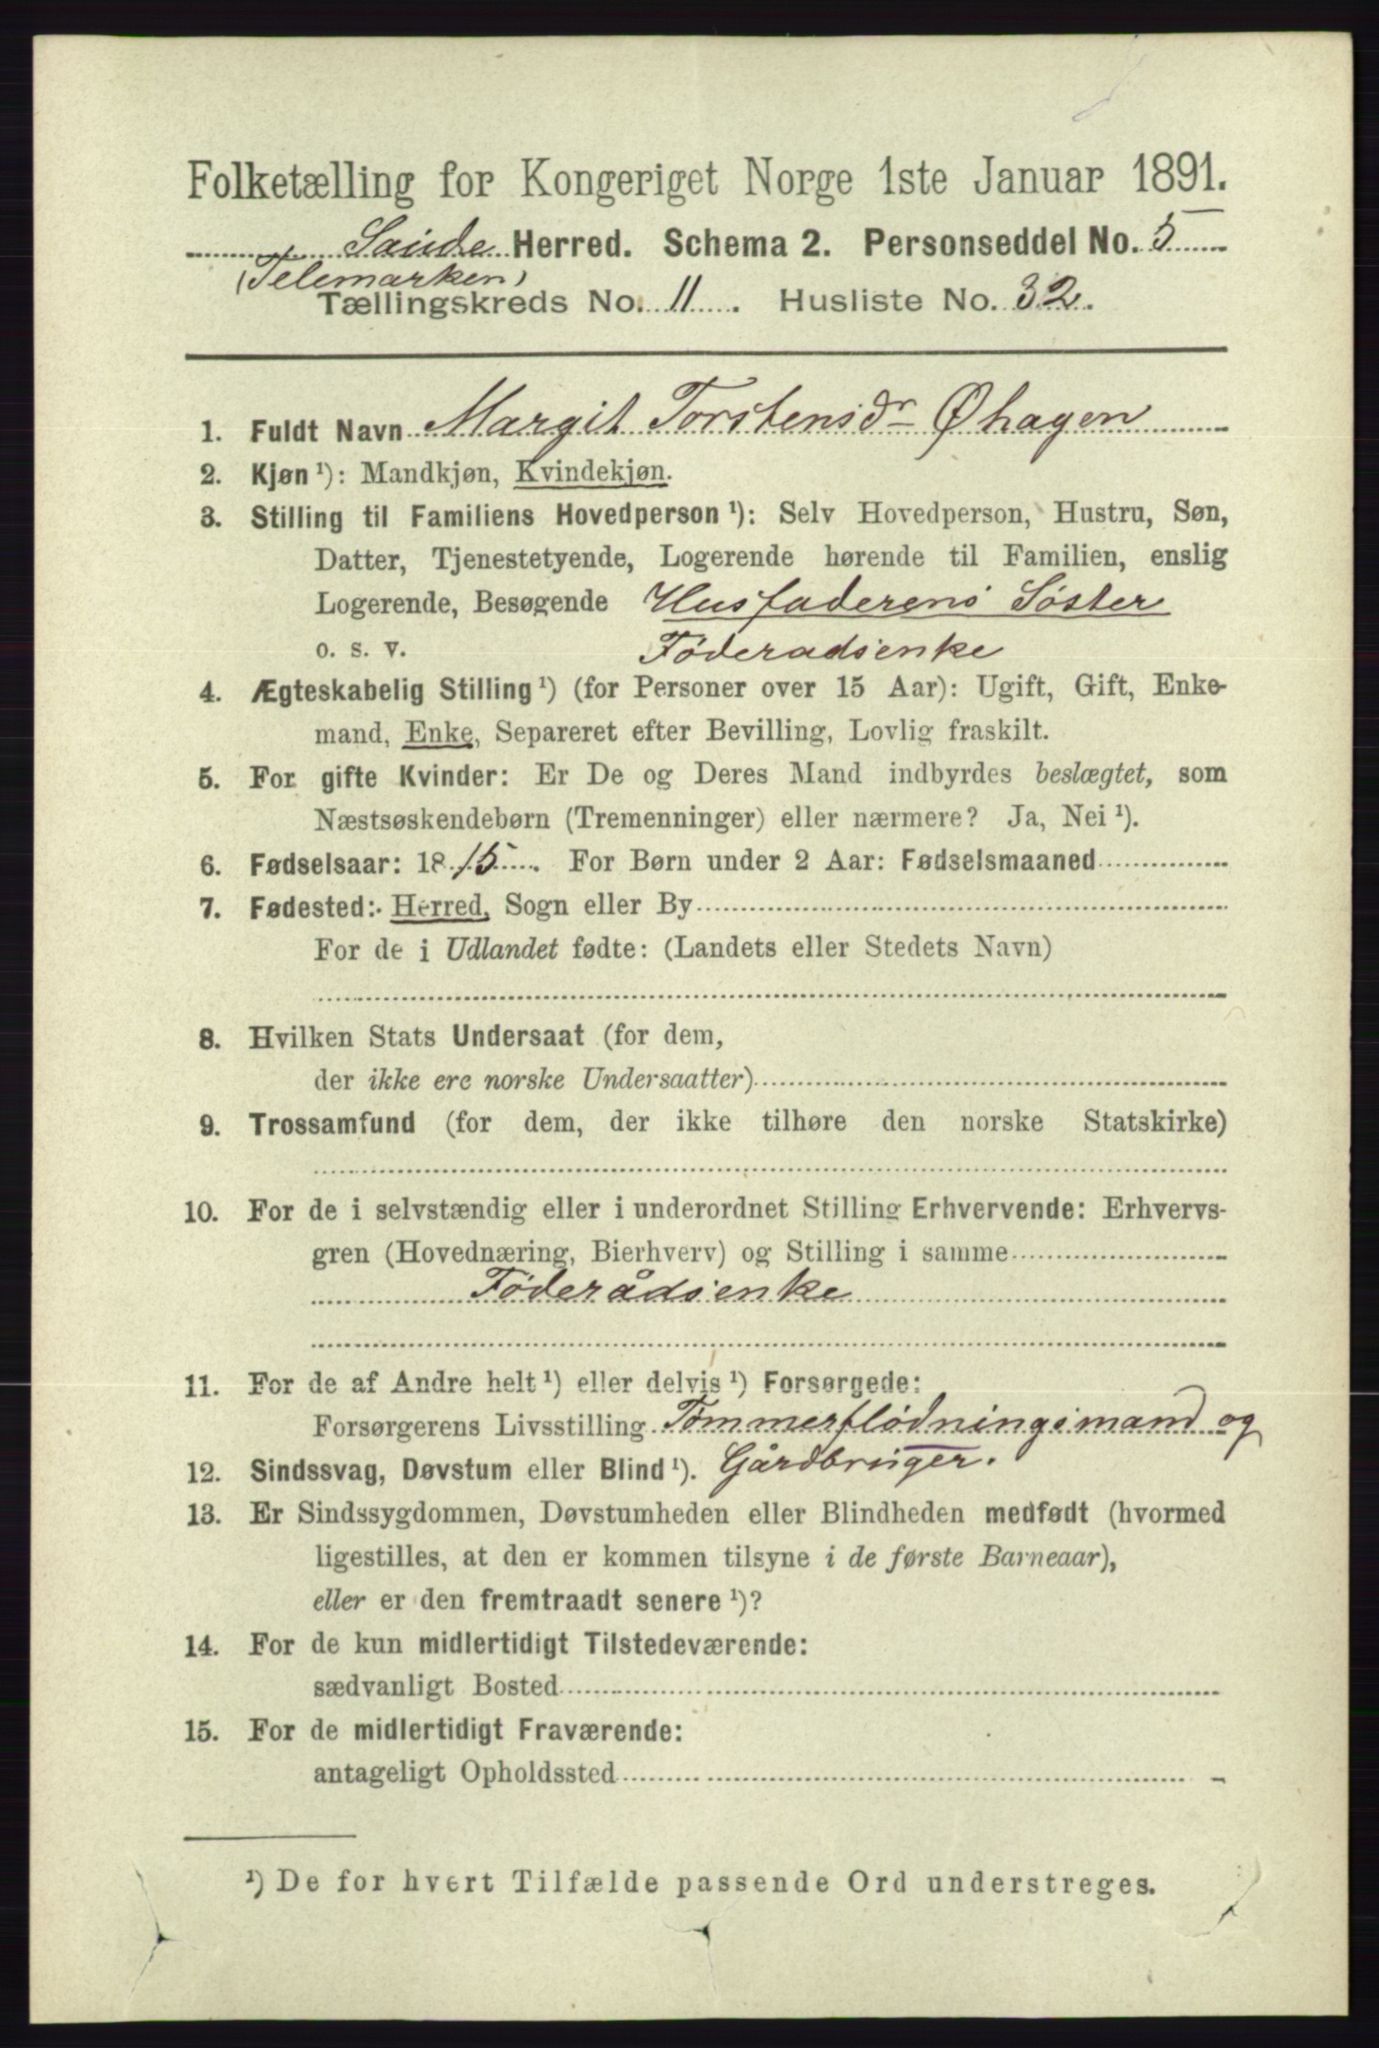 Folketælling for Kongeriget Norge 1ste Januar 1891.
Saude Herred. Schema 2. Personseddel No. 5
(Telemarken)
Tællingskreds No. 11. Husliste No. 32.
1. Fuldt Navn Margit Torstensdr Øhagen
2. Kjøn ¹): Mandkjøn, Kvindekjøn.
3. Stilling til Familiens Hovedperson ¹): Selv Hovedperson, Hustru, Søn,
Datter, Tjenestetyende, Logerende hørende til Familien, enslig
Logerende, Besøgende Husfaderens Søster
o. s. v. Føderadsenke
4. Ægteskabelig Stilling ¹) (for Personer over 15 Aar): Ugift, Gift, Enke-
mand, Enke, Separeret efter Bevilling, Lovlig fraskilt.
5. For gifte Kvinder: Er De og Deres Mand indbyrdes beslægtet, som
Næstsøskendebørn (Tremenninger) eller nærmere? Ja, Nei ¹).
6. Fødselsaar: 1815. For Børn under 2 Aar: Fødselsmaaned
7. Fødested: Herred, Sogn eller By
For de i Udlandet fødte: (Landets eller Stedets Navn)
8. Hvilken Stats Undersaat (for dem,
der ikke ere norske Undersaatter)
9. Trossamfund (for dem, der ikke tilhøre den norske Statskirke)
10. For de i selvstændig eller i underordnet Stilling Erhvervende: Erhvervs-
gren (Hovednæring, Bierhverv) og Stilling i samme
Føderådsenke
11. For de af Andre helt ¹) eller delvis ¹) Forsørgede:
Forsørgerens Livsstilling Tømmerflødningsmand og
12. Sindssvag, Døvstum eller Blind ¹). Gårdbruger.
13. Er Sindssygdommen, Døvstumheden eller Blindheden medfødt (hvormed
ligestilles, at den er kommen tilsyne i de første Barneaar),
eller er den fremtraadt senere ¹)?
14. For de kun midlertidigt Tilstedeværende:
sædvanligt Bosted
15. For de midlertidigt Fraværende:
antageligt Opholdssted
¹) De for hvert Tilfælde passende Ord understreges.